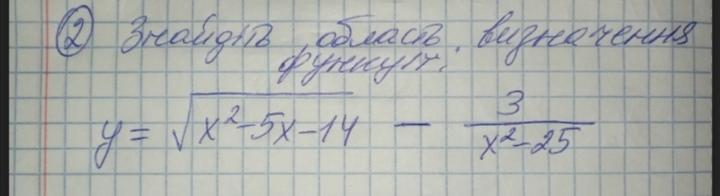 ② Знайдіть область визначення
функції.
y = √(x²-5x-14) - 3/(x²-25)